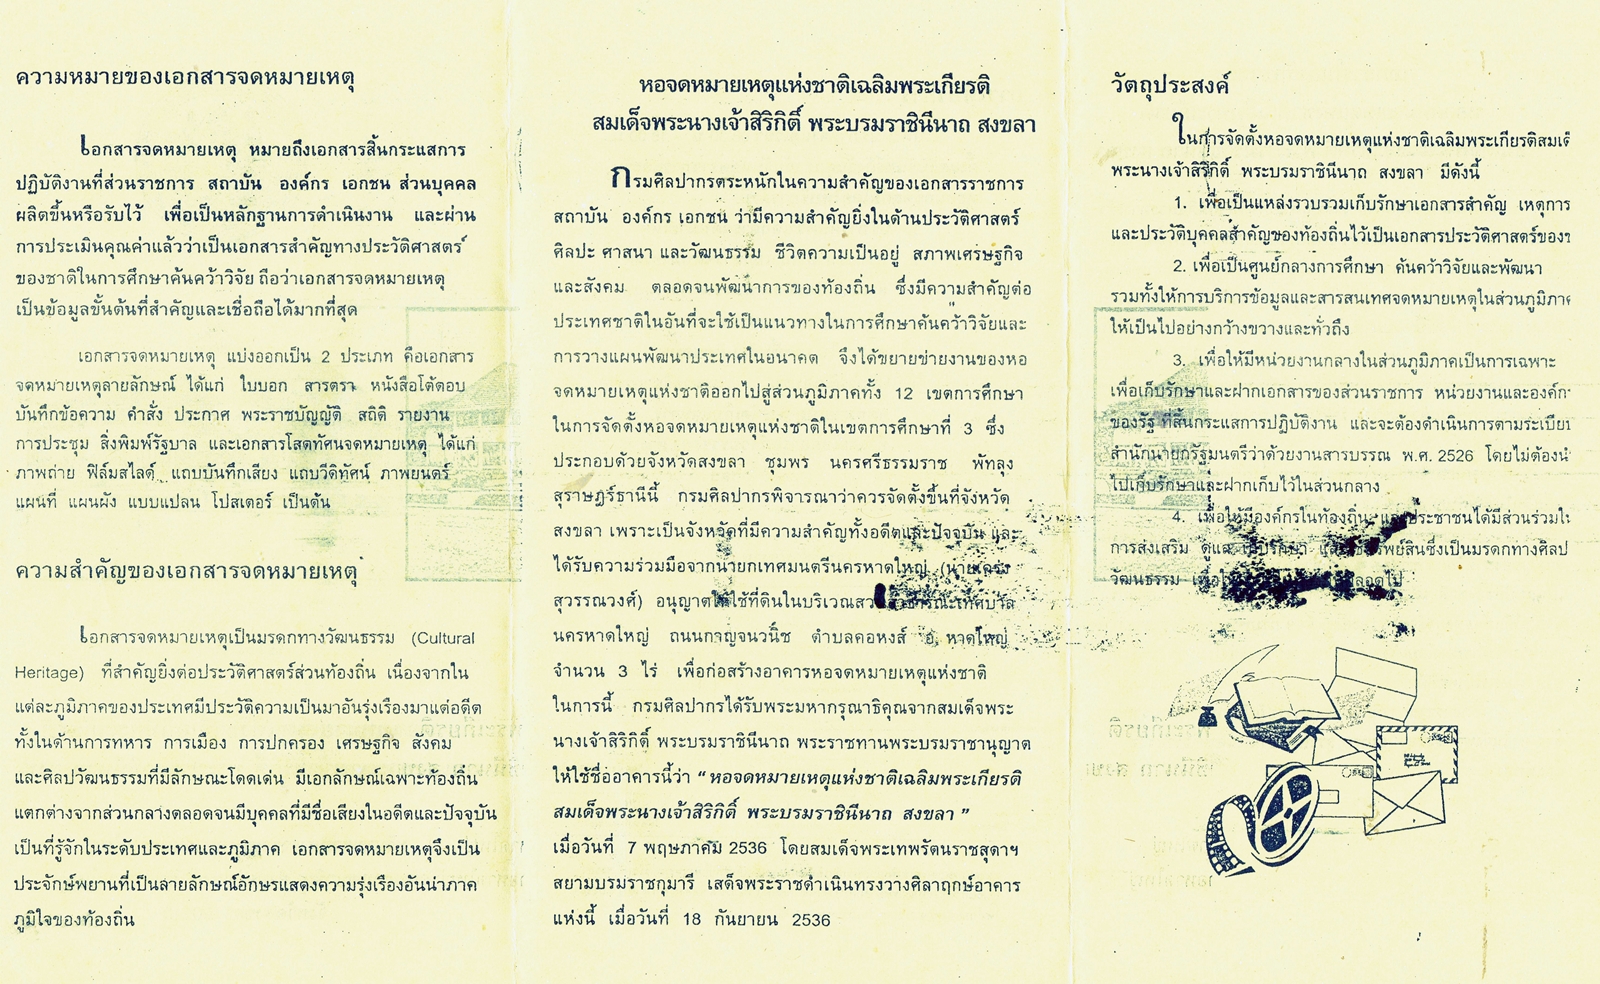 ความหมายของเอกสารจดหมายเหตุ
เอกสารจดหมายเหตุ หมายถึงเอกสารสิ้นกระแสการ
ปฏิบัติงานที่ส่วนราชการ สถาบัน องค์กร เอกชน ส่วนบุคคล
ผลิตขึ้นหรือรับไว้ เพื่อเป็นหลักฐานการดำเนินงาน และผ่าน
การประเมินคุณค่าแล้วว่าเป็นเอกสารสำคัญทางประวัติศาสตร์
ของชาติในการศึกษาค้นคว้าวิจัย ถือว่าเอกสารจดหมายเหตุ
เป็นข้อมูลขั้นต้นที่สำคัญและเชื่อถือได้มากที่สุด
เอกสารจดหมายเหตุ แบ่งออกเป็น 2 ประเภท คือเอกสาร
จดหมายเหตุลายลักษณ์ ได้แก่ ใบบอก สารตรา หนังสือโต้ตอบ
บันทึกข้อความ คำสั่ง ประกาศ พระราชบัญญัติ สถิติ รายงาน
การประชุม สิ่งพิมพ์รัฐบาล และเอกสารโสตทัศนจดหมายเหตุ ได้แก่
ภาพถ่าย ฟิล์มสไลด์ แถบบันทึกเสียง แถบวีดิทัศน์ ภาพยนตร์
แผนที่ แผนผัง แบบแปลน โปสเตอร์ เป็นต้น
ความสำคัญของเอกสารจดหมายเหตุ
เอกสารจดหมายเหตุเป็นมรดกทางวัฒนธรรม (Cultural
Heritage) ที่สำคัญยิ่งต่อประวัติศาสตร์ส่วนท้องถิ่น เนื่องจากใน
แต่ละภูมิภาคของประเทศมีประวัติความเป็นมาอันรุ่งเรืองมาแต่อดีต
ทั้งในด้านการทหาร การเมือง การปกครอง เศรษฐกิจ สังคม
และศิลปวัฒนธรรมที่มีลักษณะโดดเด่น มีเอกลักษณ์เฉพาะท้องถิ่น
แตกต่างจากส่วนกลางตลอดจนมีบุคคลที่มีชื่อเสียงในอดีตและปัจจุบัน
เป็นที่รู้จักในระดับประเทศและภูมิภาค เอกสารจดหมายเหตุจึงเป็น
ประจักษ์พยานที่เป็นลายลักษณ์อักษรแสดงความรุ่งเรืองอันน่าภาค
ภูมิใจของท้องถิ่น
หอจดหมายเหตุแห่งชาติเฉลิมพระเกียรติ
สมเด็จพระนางเจ้าสิริกิติ์ พระบรมราชินีนาถ สงขลา
กรมศิลปากรตระหนักในความสำคัญของเอกสารราชการ
สถาบัน องค์กร เอกชน ว่ามีความสำคัญยิ่งในด้านประวัติศาสตร์
ศิลปะ ศาสนา และวัฒนธรรม ชีวิตความเป็นอยู่ สภาพเศรษฐกิจ
และสังคม ตลอดจนพัฒนาการของท้องถิ่น ซึ่งมีความสำคัญต่อ
ประเทศชาติในอันที่จะใช้เป็นแนวทางในการศึกษาค้นคว้าวิจัยและ
การวางแผนพัฒนาประเทศในอนาคต จึงได้ขยายข่ายงานของหอ
จดหมายเหตุแห่งชาติออกไปสู่ส่วนภูมิภาคทั้ง 12 เขตการศึกษา
ในการจัดตั้งหอจดหมายเหตุแห่งชาติในเขตการศึกษาที่ 3 ซึ่ง
ประกอบด้วยจังหวัดสงขลา ชุมพร นครศรีธรรมราช พัทลุง
สุราษฎร์ธานีนี้ กรมศิลปากรพิจารณาว่าควรจัดตั้งขึ้นที่จังหวัด
สงขลา เพราะเป็นจังหวัดที่มีความสำคัญทั้งอดีตและปัจจุบัน และ
ได้รับความร่วมมือจากนายกเทศมนตรีนครหาดใหญ่ (นายเคร่ง
สุวรรณวงศ์) อนุญาตให้ใช้ที่ดินในบริเวณสวนสาธารณะเทศบาล
นครหาดใหญ่ ถนนกาญจนวนิช ตำบลคอหงส์ อ. หาดใหญ่
จำนวน 3 ไร่ เพื่อก่อสร้างอาคารหอจดหมายเหตุแห่งชาติ
ในการนี้ กรมศิลปากรได้รับพระมหากรุณาธิคุณจากสมเด็จพระ
นางเจ้าสิริกิติ์ พระบรมราชินีนาถ พระราชทานพระบรมราชานุญาต
ให้ใช้ชื่ออาคารนี้ว่า “ หอจดหมายเหตุแห่งชาติเฉลิมพระเกียรติ
สมเด็จพระนางเจ้าสิริกิติ์ พระบรมราชินีนาถ สงขลา ”
เมื่อวันที่ 7 พฤษภาคม 2536 โดยสมเด็จพระเทพรัตนราชสุดาฯ
สยามบรมราชกุมารี เสด็จพระราชดำเนินทรงวางศิลาฤกษ์อาคาร
แห่งนี้ เมื่อวันที่ 18 กันยายน 2536
วัตถุประสงค์
ในการจัดตั้งหอจดหมายเหตุแห่งชาติเฉลิมพระเกียรติสมเด็
พระนางเจ้าสิริกิติ์ พระบรมราชินีนาถ สงขลา มีดังนี้
1. เพื่อเป็นแหล่งรวบรวมเก็บรักษาเอกสารสำคัญ เหตุการ
และประวัติบุคคลสำคัญของท้องถิ่นไว้เป็นเอกสารประวัติศาสตร์ของ
2. เพื่อเป็นศูนย์กลางการศึกษา ค้นคว้าวิจัยและพัฒนา
รวมทั้งให้การบริการข้อมูลและสารสนเทศจดหมายเหตุในส่วนภูมิภา
ให้เป็นไปอย่างกว้างขวางและทั่วถึง
3. เพื่อให้มีหน่วยงานกลางในส่วนภูมิภาคเป็นการเฉพาะ
เพื่อเก็บรักษาและฝากเอกสารของส่วนราชการ หน่วยงานและองค์ก
ของรัฐ ที่สิ้นกระแสการปฏิบัติงาน และจะต้องดำเนินการตามระเบีย
สำนักนายกรัฐมนตรีว่าด้วยงานสารบรรณ พ.ศ. 2526 โดยไม่ต้องนำ
ไปเก็บรักษาและฝากเก็บไว้ในส่วนกลาง
4. เพื่อให้มีองค์กรในท้องถิ่น และประชาชนได้มีส่วนร่วมใน
การส่งเสริม ดูแล ทรัพย์สินซึ่งเป็นมรดกทางศิลป
วัฒนธรรม